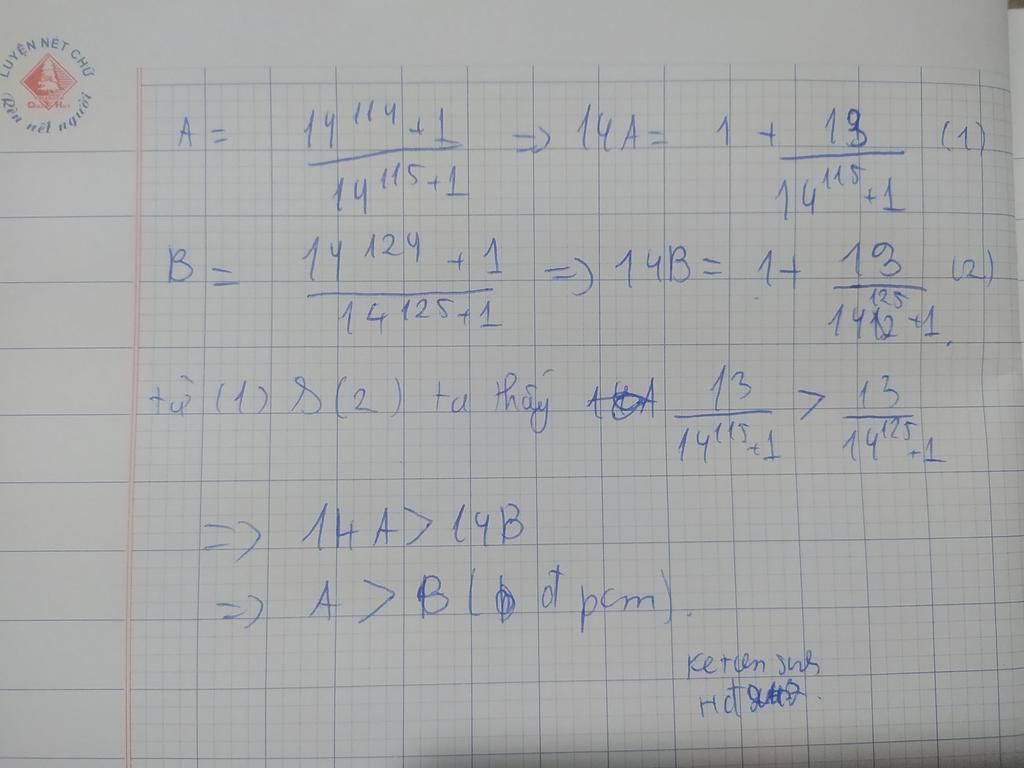 LUYỆN NẾT CHỮ
Rèn nết người
A = (14^114 + 1)/(14^115 + 1) => 14A = 1 + 13/(14^115 + 1) (1)
B = (14^124 + 1)/(14^125 + 1) => 14B = 1 + 13/(14^125 + 1) (2)
từ (1) & (2) ta thấy 13/(14^115 + 1) > 13/(14^125 + 1)
=> 14A > 14B
=> A > B (đpcm).